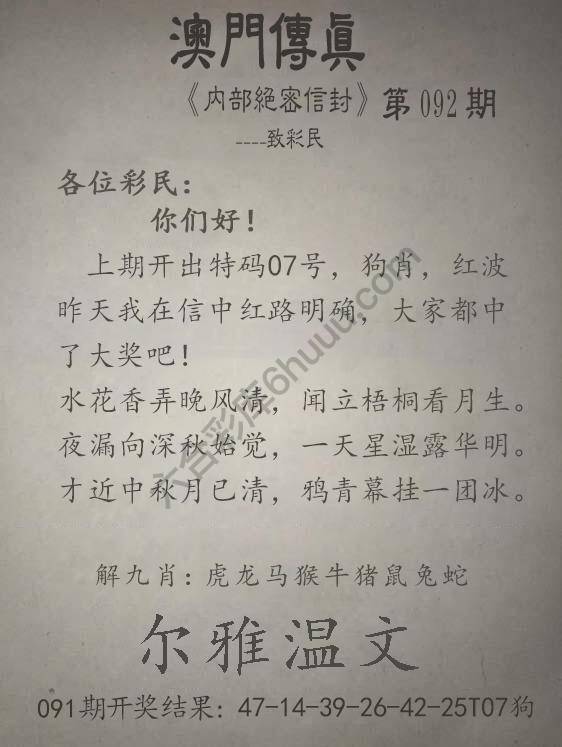 澳門傳眞
《内部絕密信封》第092期
----致彩民
各位彩民：
你们好！
上期开出特码07号，狗肖，红波
昨天我在信中红路明确，大家都中
了大奖吧！
水花香弄晚风清，闻立梧桐看月生。
夜漏向深秋始觉，一天星湿露华明。
才近中秋月已清，鸦青幕挂一团冰。
解九肖：虎龙马猴牛猪鼠兔蛇
尔雅温文
091期开奖结果：47-14-39-26-42-25T07狗
六合彩库6huuu.com